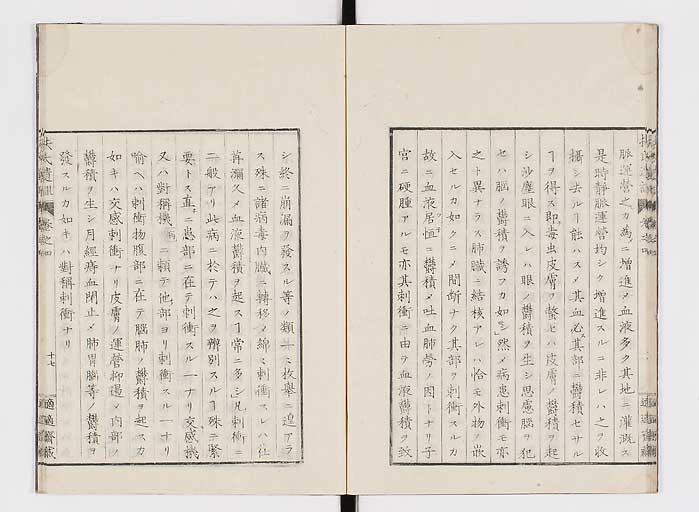 脈運営之カ為ニ増進メ血液多ク其地ニ灌漑ス
是時静脈運営均シク増進スルニ非レハ之ヲ收
攝シ去ルヿ能ハスメ其血必其部ニ鬱積セサル
ヿヲ得ス即毒虫皮膚ヲ螫セハ皮膚ノ鬱積ヲ起
シ沙塵眼ニ入レハ眼ノ鬱積ヲ生シ思慮脳ヲ犯
セハ脳ノ鬱積ヲ誘フカ如シ然メ病患刺衝モ亦
之ト異ナラス肺臓ニ結核アレハ恰モ外物ヲ嵌
入セルカ如クニメ間断ナク其部ヲ刺衝スルカ
故ニ血液居恒ニ鬱積メ吐血肺労ノ因トナリ子
宮ニ硬腫アルモ亦其刺衝ニ由テ血液鬱積ヲ致
シ終ニ崩漏ヲ發スル等ノ類ニ枚舉ニ遑アラ
ス殊ニ諸病毒内臓ニ轉移メ綿ミ刺衝スレハ荏
苒彌久メ血液鬱積ヲ起スヿ常ニ多シ凡刺衝ニ
二般アリ此病ニ於テハ之ヲ辨別スルヿ殊ニ緊
要トス直ニ患部ニ在テ刺衝スル一ナリ交感機
又ハ對稱機ニ頼テ他部ヨリ刺衝スル一ナリ
喩ヘハ刺衝物腹部ニ在テ脳肺ノ鬱積ヲ起スカ
如キハ交感刺衝ナリ皮膚ノ運營抑遏メ内部ノ
鬱積ヲ生シ月經痔血閉止メ肺胃脳等ノ鬱積ヲ
發スルカ如キハ對稱刺衝ナリ
扶氏 卷之四
十七
適適齋藏